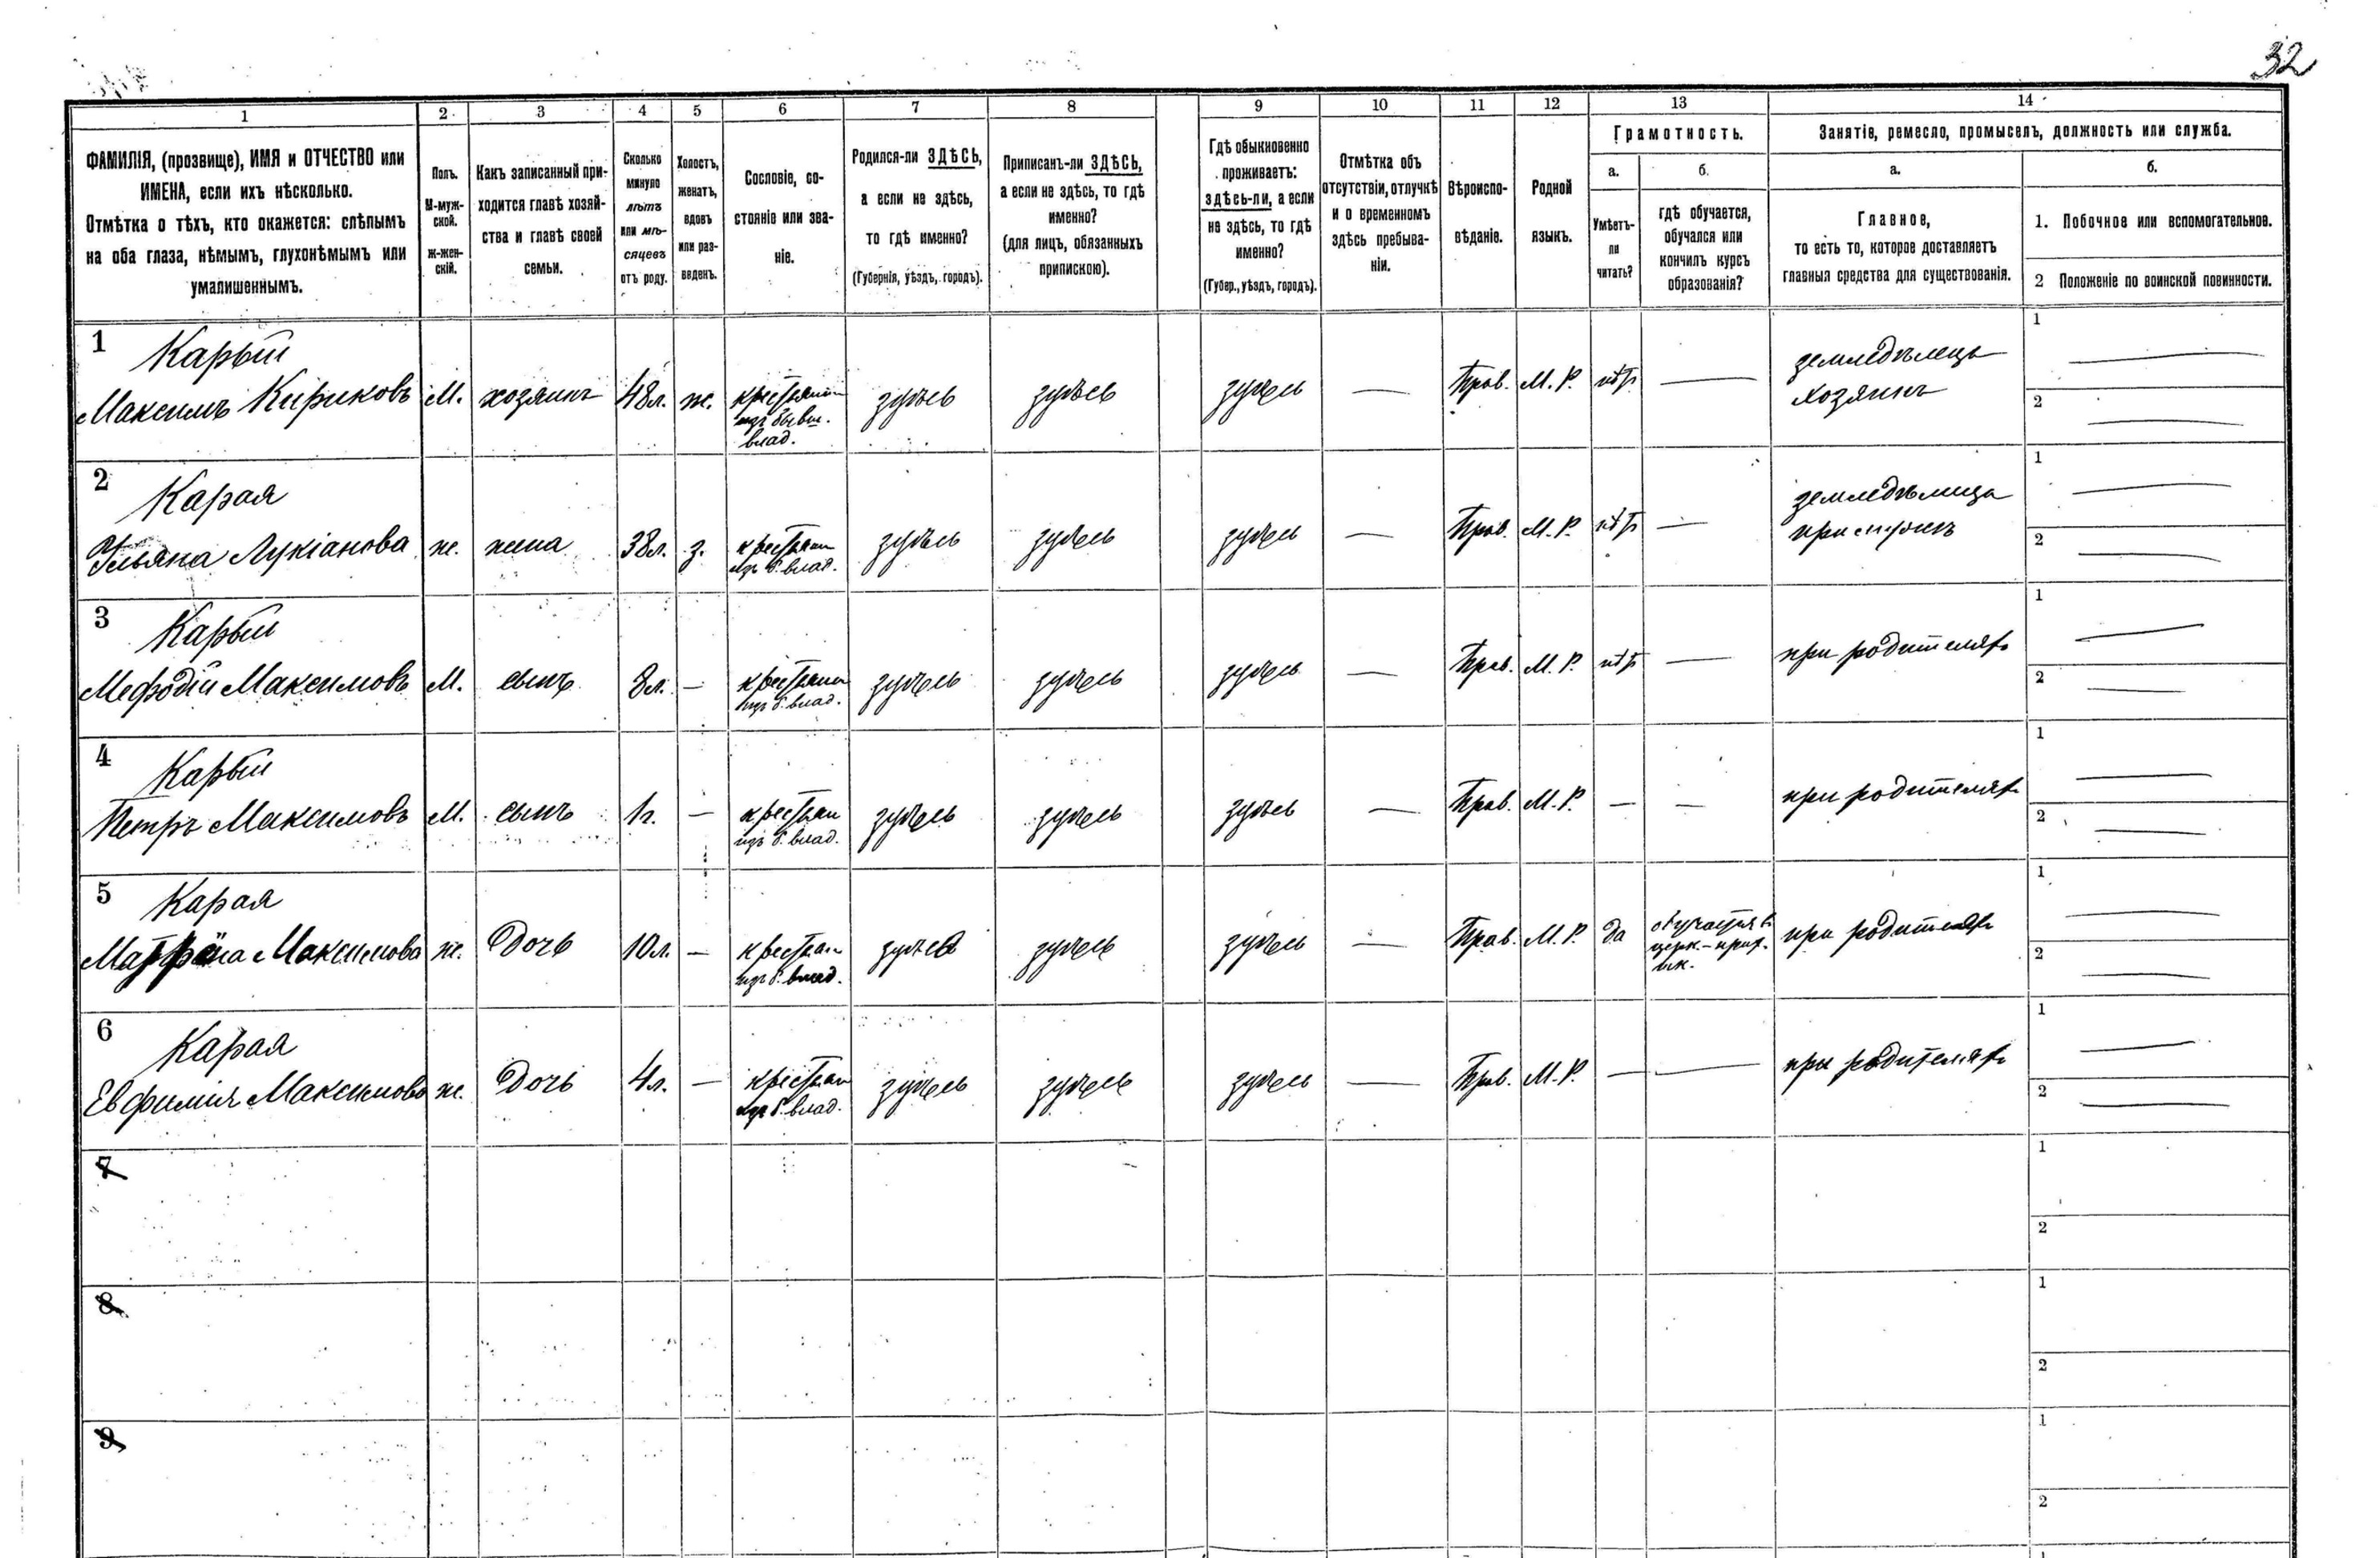 32
1 2 3 4 5 6 7 8 9 10 11 12 13 14
ФАМИЛІЯ, (прозвище), ИМЯ и ОТЧЕСТВО или
ИМЕНА, если ихъ нѣсколько.
Отмѣтка о тѣхъ, кто окажется: слѣпымъ
на оба глаза, нѣмымъ, глухонѣмымъ или
умалишеннымъ.
Полъ.
М-муж-
ской.
ж-жен-
скій.
Какъ записанный при-
ходится главѣ хозяй-
ства и главѣ своей
семьи.
Сколько
минуло
лѣтъ
или мѣ-
сяцевъ
отъ роду.
Холостъ,
женатъ,
вдовъ
или раз-
веденъ.
Сословіе, со-
стояніе или зва-
ніе.
Родился-ли ЗДѢСЬ,
а если не здѣсь,
то гдѣ именно?
(Губернія, уѣздъ, городъ).
Приписанъ-ли ЗДѢСЬ,
а если не здѣсь, то гдѣ
именно?
(для лицъ, обязанныхъ
припискою).
Гдѣ обыкновенно
проживаетъ:
здѣсь-ли, а если
не здѣсь, то гдѣ
именно?
(Губер., уѣздъ, городъ).
Отмѣтка объ
отсутствіи, отлучкѣ
и о временномъ
здѣсь пребыва-
ніи.
Вѣроиспо-
вѣданіе.
Родной
языкъ.
Грамотность.
а.
Умѣетъ-
ли
читать?
б.
гдѣ обучается,
обучался или
кончилъ курсъ
образованія?
Занятіе, ремесло, промыселъ, должность или служба.
а.
Главное,
то есть то, которое доставляетъ
главныя средства для существованія.
б.
1. Побочное или вспомогательное.
2 Положеніе по воинской повинности.
1 Карый
Максимъ Кириковъ М. хозяинъ 48л. ж. крестьянин
изъ бывш.
влад.
здѣсь здѣсь здѣсь — Прав. М. Р. нѣтъ —
земледѣлецъ
хозяинъ
1 —
2 —
2 Карая
Ульяна Лукіанова ж. жена 38л. з. крестьян
изъ б. влад.
здѣсь здѣсь здѣсь — Прав. М. Р. нѣтъ —
земледѣлица
при мужѣ
1 —
2 —
3 Карый
Мефодій Максимовъ М. сынъ 8л. — крестьян
изъ б. влад.
здѣсь здѣсь здѣсь — Прав. М. Р. нѣтъ — при родителях
1 —
2 —
4 Карый
Петръ Максимовъ М. сынъ 1г. — крестьян
изъ б. влад.
здѣсь здѣсь здѣсь — Прав. М. Р. — — при родителях
1 —
2 —
5 Карая
Матрёна Максимова ж. Дочь 10л. — крестьян
изъ б. влад.
здѣсь здѣсь здѣсь — Прав. М. Р. да
обучается в
церк.-прих.
шк.
при родителях
1 —
2 —
6 Карая
Евфимія Максимова ж. Дочь 4л. — крестьян
изъ б. влад.
здѣсь здѣсь здѣсь — Прав. М. Р. — — при родителях
1 —
2 —
7
1
2
8
1
2
9
1
2